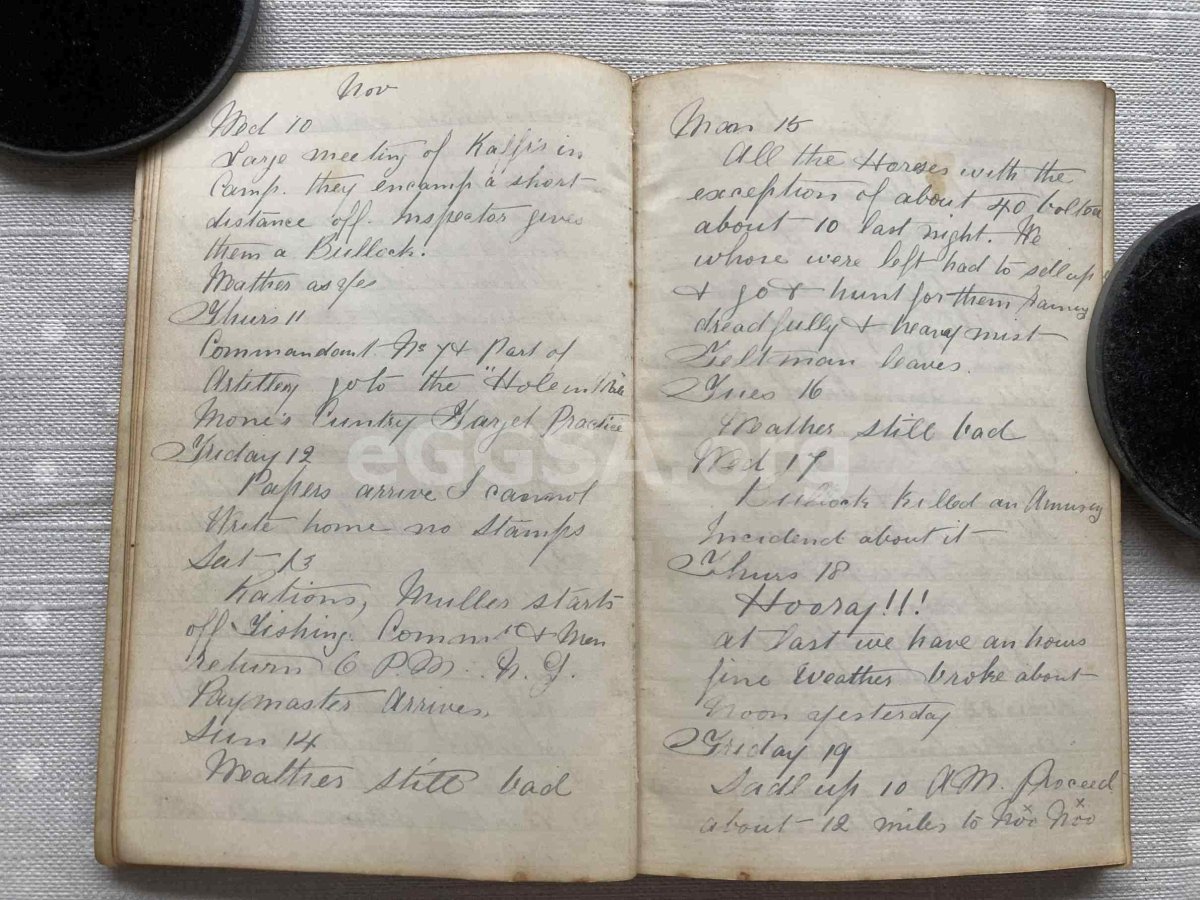 Nov
Wed 10
Large meeting of Kaffirs in
Camp. they encamp a short
distance off. Inspector gives
them a Bullock.
Weather as yes
Thurs 11
Commandant No 7 & Part of
Artillery go to the "Hole in
Moni's Cuntry Target Practice
Friday 12
Papers arrive I cannot
Write home no Stamps
Sat 13
Rations, Muller starts
off Fishing. Commnt & Men
return 6 P.M. N. G.
Paymaster Arrives.
Sun 14
Weather still bad
Mon 15
All the Horses with the
exception of about 40 bolted
about 10 last night. We
whose were left had to sdl up
& go & hunt for them Raining
dreadfully & heavy mist
Feltman leaves.
Tues 16
Weather still bad
Wed 17
killed an Amusing
Incidend about it
Thurs 18
Hooray!!!
at last we have an hours
fine Weather broke about
Noon yesterday
Friday 19
Sadl up 10 AM. Proceed
about 12 miles to
eGGSA.org